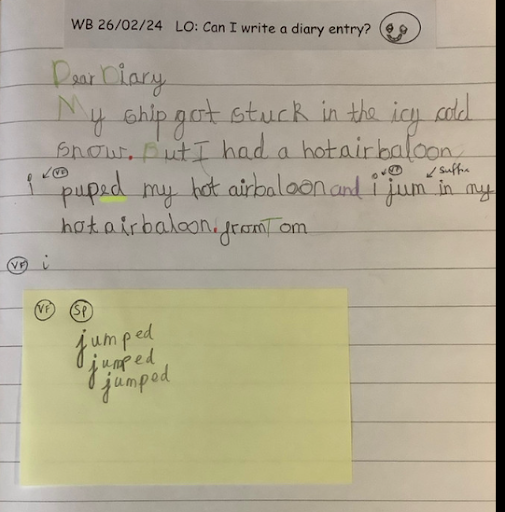 WB 26/02/24 LO: Can I write a diary entry?
Dear Diary
My ship got stuck in the icy cold
snour. But I had a hotairbaloon
VF VF suffix
i puped my hot airbaloon and i jum in my
hotairbaloon. from Tom
VF i
VF SP
jumped
jumped
jumped